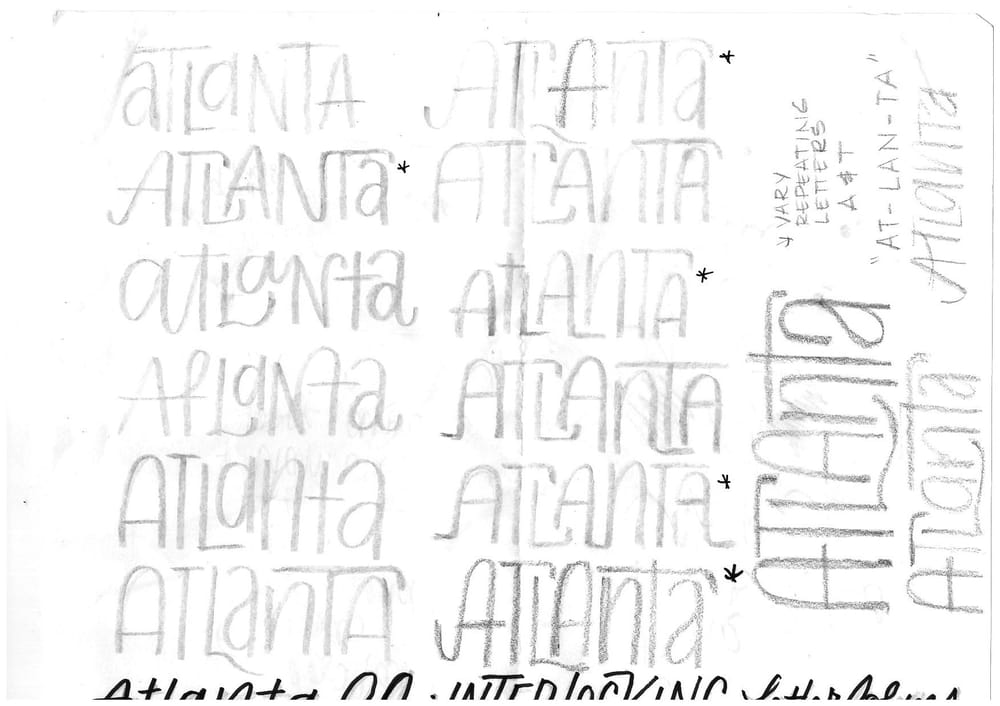 aTLaNTA
ATLANTa *
aTLaNta
AtLaNta
ATLanta
ATLanTA
ATLAnTa *
ATLANTA
ATLAnTA *
ATLAnTA
ATLAnTA *
ATLAnTa *
* VARY
REPEATING
LETTERS
A & T
"AT-LAN-TA"
ATLanTa
ATLAnta
ATLanta
Atlanta INTERLOCKING